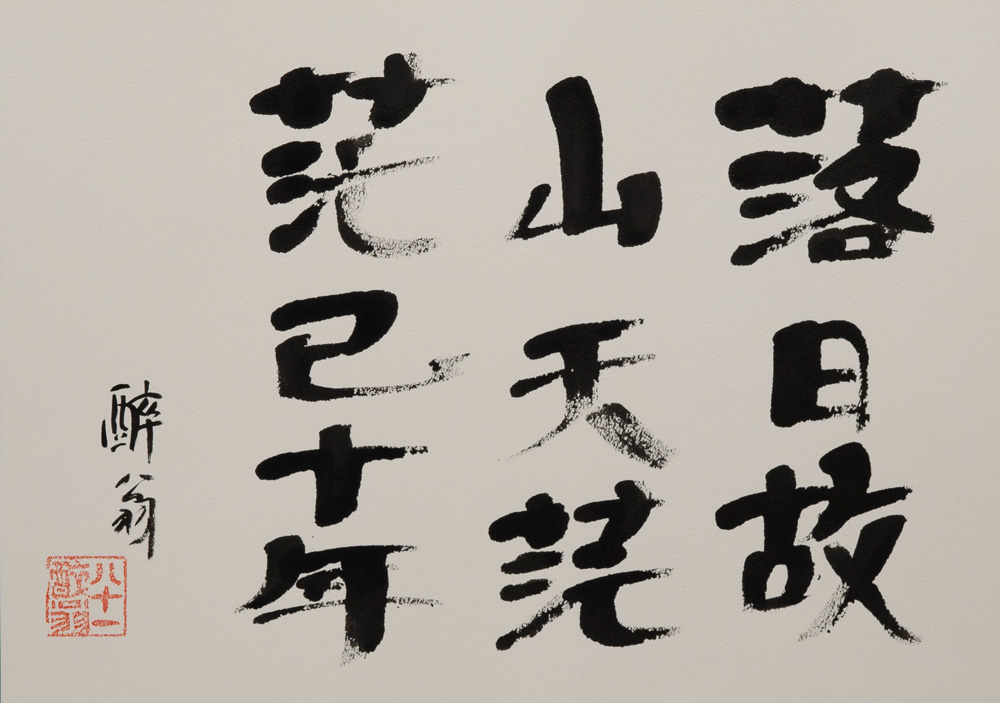 落日故
山天茫
茫已十年
醉翁
八十一
醉翁